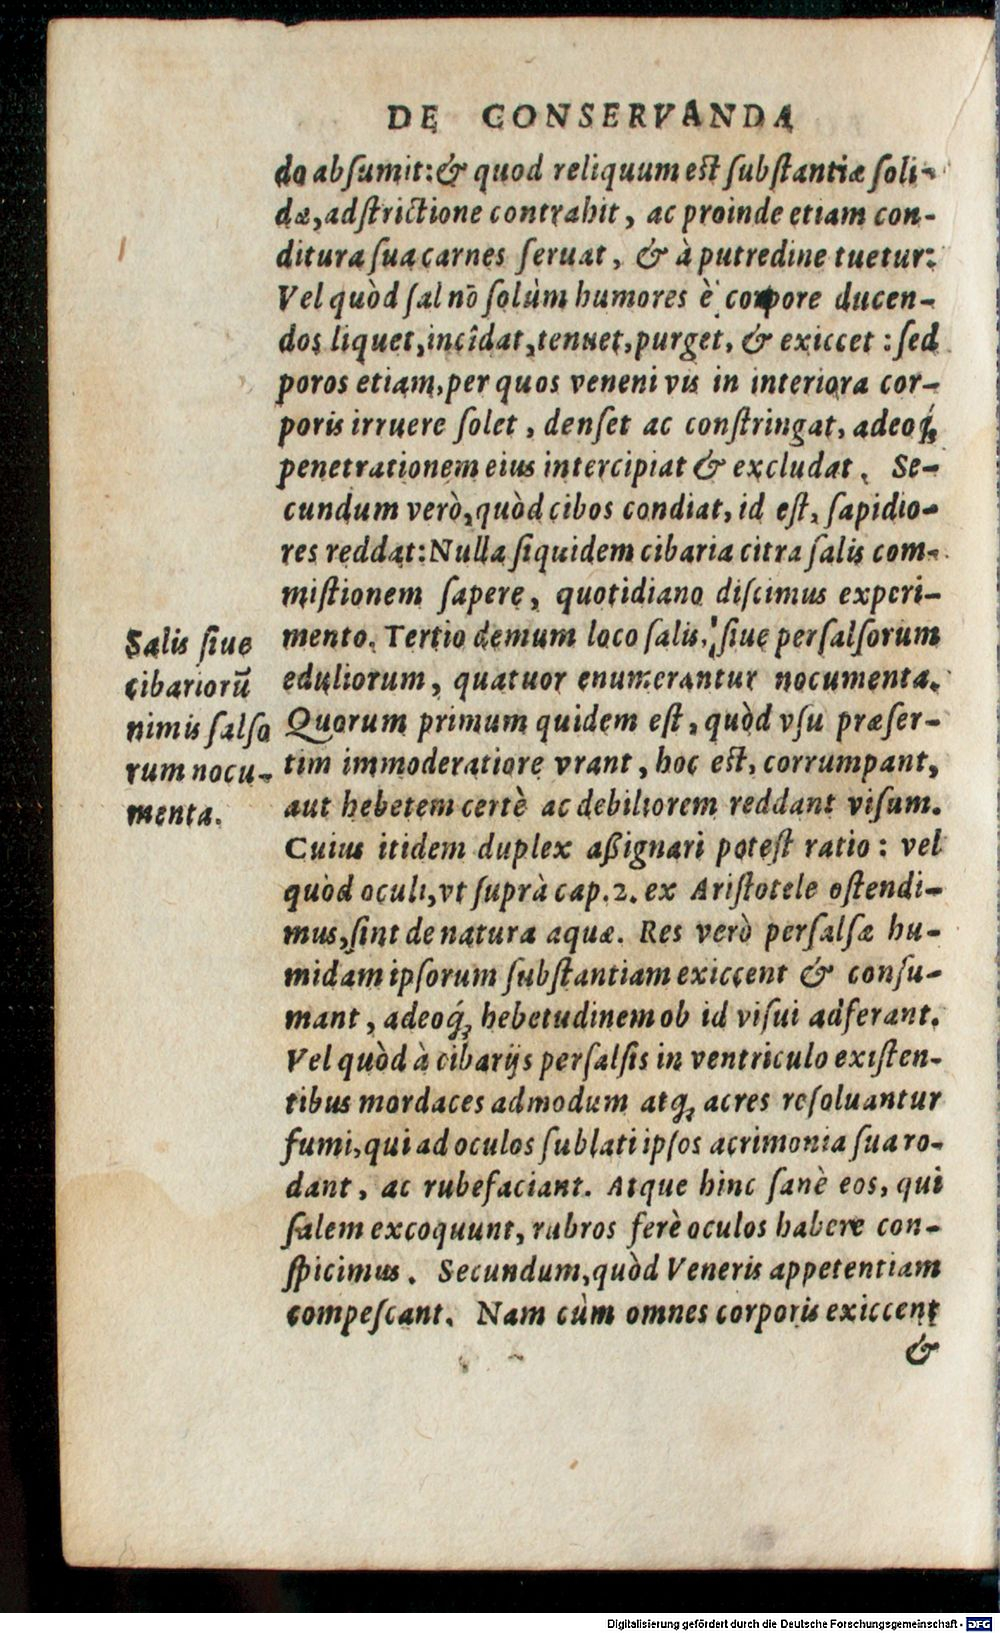 DE CONSERVANDA
do abſumit: & quod reliquum eſt ſubſtantiæ ſoli-
dæ, adſtrictione contrahit, ac proinde etiam con-
ditura ſua carnes ſeruat, & à putredine tuetur:
Vel quòd ſal nō ſolùm humores è corpore ducen-
dos liquet, incîdat, tenuet, purget, & exiccet: ſed
poros etiam, per quos veneni vis in interiora cor-
poris irruere ſolet, denſet ac conſtringat, adeoq́;
penetrationem eius intercipiat & excludat. Se-
cundum verò, quòd cibos condiat, id eſt, ſapidio-
res reddat: Nulla ſiquidem cibaria citra ſalis com-
miſtionem ſapere, quotidiano diſcimus experi-
mento. Tertio demum loco ſalis, ſiue perſalſorum
eduliorum, quatuor enumerantur nocumenta.
Quorum primum quidem eſt, quòd vſu præſer-
tim immoderatiore vrant, hoc eſt, corrumpant,
aut hebetem certè ac debiliorem reddant viſum.
Cuius itidem duplex aßignari poteſt ratio: vel
quòd oculi, vt ſuprà cap. 2. ex Ariſtotele oſtendi-
mus, ſint de natura aquæ. Res verò perſalſæ hu-
midam ipſorum ſubſtantiam exiccent & conſu-
mant, adeoq́; hebetudinem ob id viſui adferant.
Vel quòd à cibarijs perſalſis in ventriculo exiſten-
tibus mordaces admodum atq; acres reſoluantur
fumi, qui ad oculos ſublati ipſos acrimonia ſua ro-
dant, ac rubefaciant. Atque hinc ſanè eos, qui
ſalem excoquunt, rubros ferè oculos habere con-
ſpicimus. Secundum, quòd Veneris appetentiam
compeſcant. Nam cùm omnes corporis exiccent
&
Salis ſiue
cibariorū
nimis ſalſo
rum nocu-
menta.
Digitalisierung gefördert durch die Deutsche Forschungsgemeinschaft - DFG